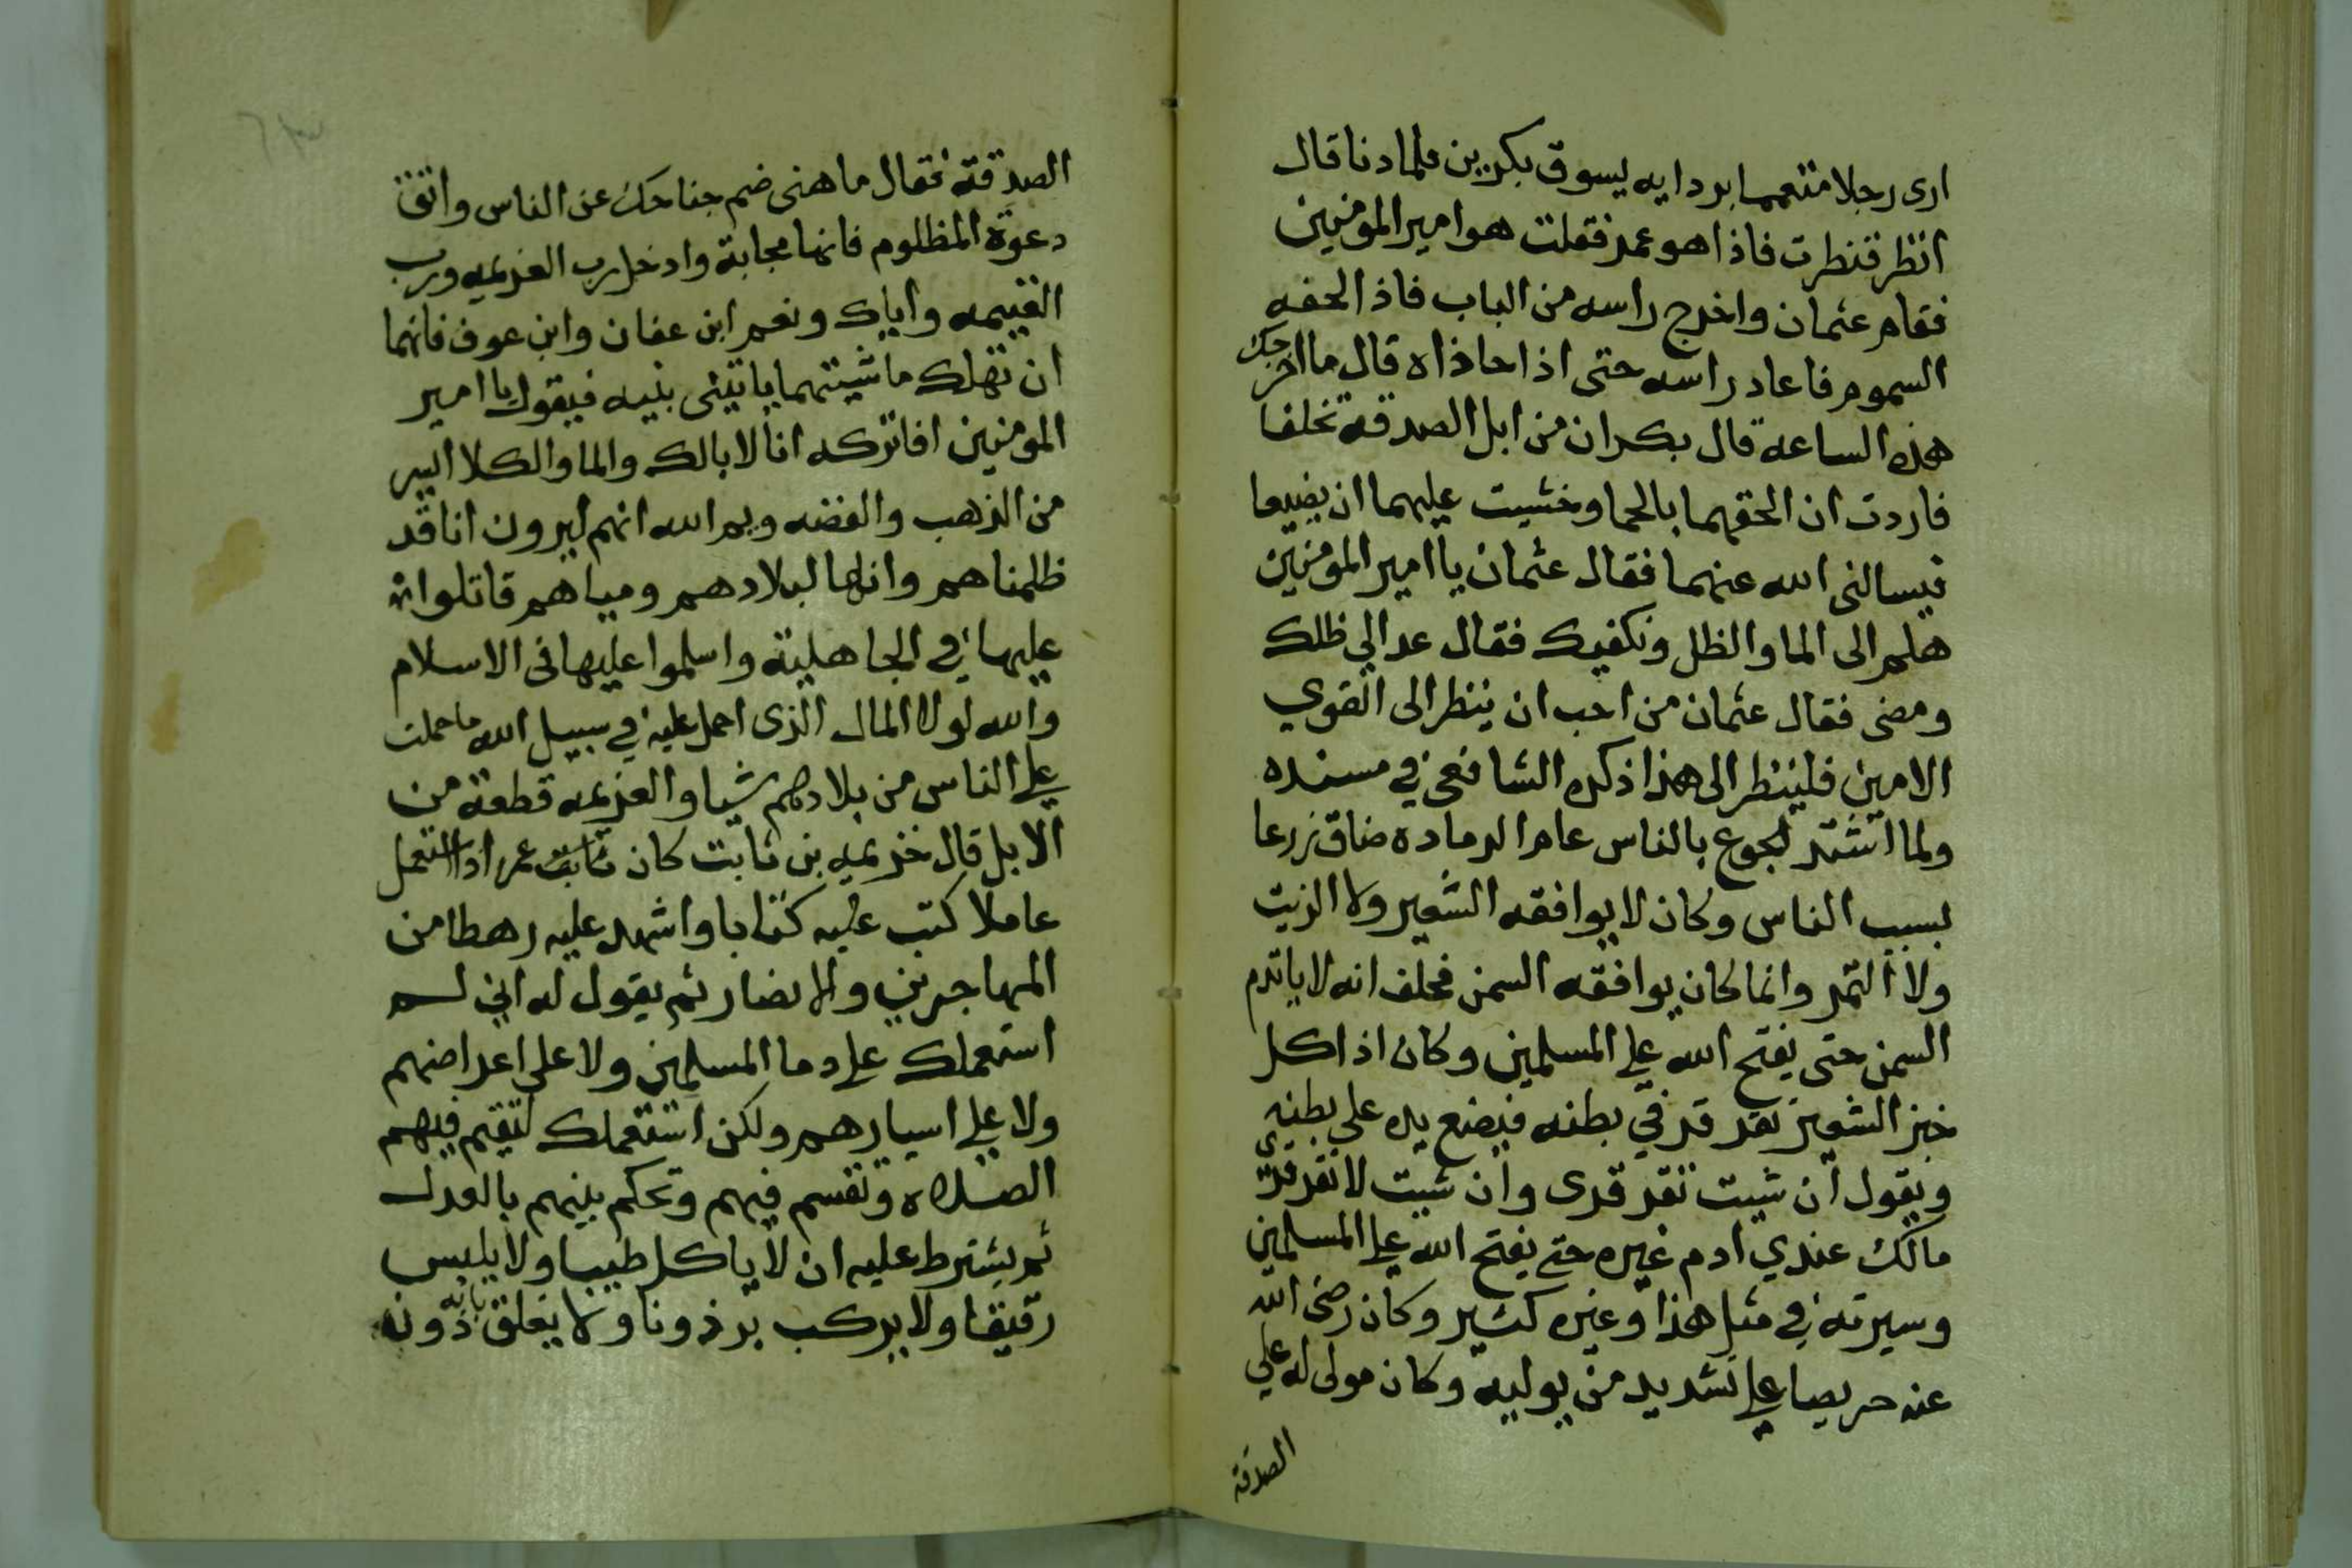 ارى رجلا متعمما بردايه يسوق بكرين فلما دنا قال
انظر فنظرت فاذا هو عمر فقلت هو امير المومنين
فقام عثمان واخرج راسه من الباب فاذا لحفه
السموم فاعاد راسه حتى اذا حاذاه قال ما اخرجك
هذه الساعة قال بكران من ابل الصدقة تخلفا
فاردت ان الحقهما بالحما وخشيت عليهما ان يضيعا
فيسالنى الله عنهما فقال عثمان يا امير المومنين
هلم الى الما والظل ونكفيك فقال عد الي ظلك
ومضى فقال عثمان من احب ان ينظر الى القوي
الامين فلينظر الى هذا ذكره الشافعي في مسنده
ولما اشتد الجوع بالناس عام الرمادة ضاق زرعا
بسبب الناس وكان لا يوافقه الشعير ولا الزيت
ولا التمر وانما كان يوافقه السمن فحلف انه لا ياتدم
السمن حتى يفتح الله علي المسلمين وكان اذا اكل
خبز الشعير تقرقر في بطنه فيضع يده على بطنه
ويقول ان شيت تقرقرى وان شيت لا تقرقري
مالك عندي ادم غيره حتي يفتح الله علي المسلمين
وسيرته في مثل هذا وغيره كثير وكان رضى الله
عنه حريصا علي تشديد من يوليه وكان مولى له علي
الصدقة
الصدقة فقال ما هنى ضم جناحك عن الناس واتق
دعوة المظلوم فانها مجابة وادخل رب الغريمه ورب
الغنيمه واياك ونعم ابن عفان وابن عوف فانهما
ان تهلك ماشيتهما ياتينى بنيه فيقول يا امير
المومنين افاتركه انا لا ابالك والما والكلا ايسر
من الذهب والفضه ويم الله انهم ليرون انا قد
ظلمناهم وانها لبلادهم ومياهم قاتلوا
عليها في الجاهلية واسلموا عليها فى الاسلام
والله لولا المال الذى احمل عليه في سبيل الله ما حملت
علي الناس من بلادهم شيا والغريمه قطعة من
الابل قال خزيمه بن ثابت كان عمر اذا استعمل
عاملا كتب عليه كتابا واشهد عليه رهطا من
المهاجرين والانصار ثم يقول له اني لم
استعملك علي دما المسلمين ولا على اعراضهم
ولا علي اسيارهم ولكن استعملك لتقيم فيهم
الصلاه وتقسم فيهم وتحكم بينهم بالعدل
ثم يشترط عليه ان لا ياكل طيبا ولا يلبس
رقيقا ولا يركب برذونا ولا يغلق بابه دونه